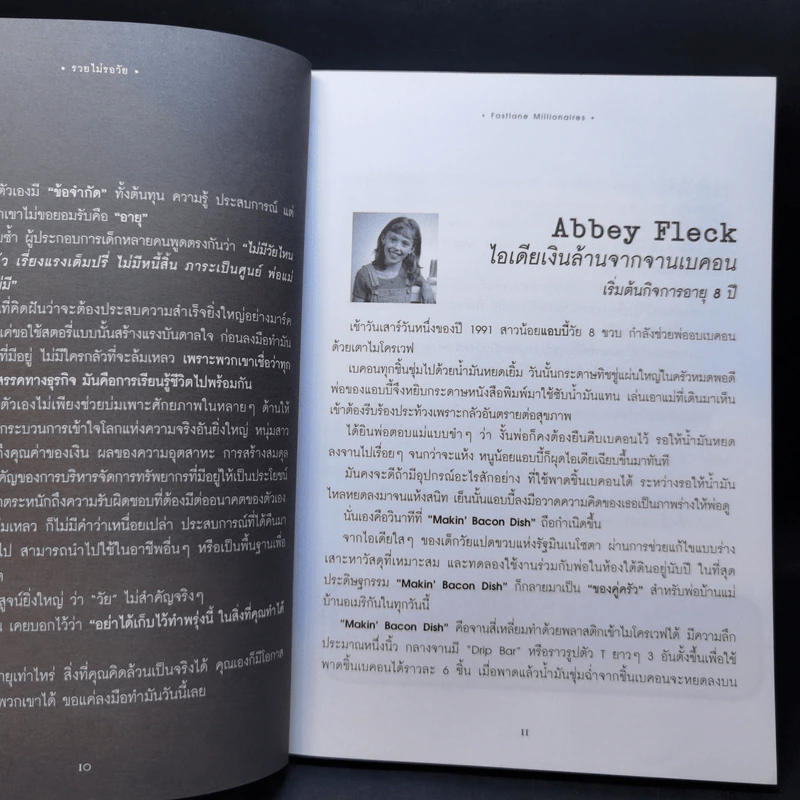 • รวยไม่รอวัย •
ตัวเองมี "ข้อจำกัด" ทั้งต้นทุน ความรู้ ประสบการณ์ แต่
เขาไม่ขอยอมรับคือ "อายุ"
ผู้ประกอบการเด็กหลายคนพูดตรงกันว่า "ไม่มีวัยไหน
เรี่ยวแรงเต็มปรี่ ไม่มีหนี้สิน ภาระเป็นศูนย์ พ่อแม่
มี"
ที่คิดฝันว่าจะต้องประสบความสำเร็จยิ่งใหญ่อย่างมาร์ค
แค่ขอใช้สตอรี่แบบนั้นสร้างแรงบันดาลใจ ก่อนลงมือทำมัน
ที่มีอยู่ ไม่มีใครกลัวที่จะล้มเหลว เพราะพวกเขาเชื่อว่าทุก
สรรคทางธุรกิจ มันคือการเรียนรู้ชีวิตไปพร้อมกัน
ตัวเองไม่เพียงช่วยบ่มเพาะศักยภาพในหลายๆ ด้านให้
กระบวนการเข้าใจโลกแห่งความจริงอันยิ่งใหญ่ หนุ่มสาว
ถึงคุณค่าของเงิน ผลของความอุตสาหะ การสร้างสมดุล
คัญของการบริหารจัดการทรัพยากรที่มีอยู่ให้เป็นประโยชน์
ตระหนักถึงความรับผิดชอบที่ต้องมีต่ออนาคตของตัวเอง
ล้มเหลว ก็ไม่มีคำว่าเหนื่อยเปล่า ประสบการณ์ที่ได้คืนมา
ไป สามารถนำไปใช้ในอาชีพอื่นๆ หรือเป็นพื้นฐานเพื่อ
ต
สูจน์ยิ่งใหญ่ ว่า "วัย" ไม่สำคัญจริงๆ
เคยบอกไว้ว่า "อย่าได้เก็บไว้ทำพรุ่งนี้ ในสิ่งที่คุณทำได้
ายุเท่าไหร่ สิ่งที่คุณคิดล้วนเป็นจริงได้ คุณเองก็มีโอกาส
พวกเขาได้ ขอแค่ลงมือทำมันวันนี้เลย
10
• Fastlane Millionaires •
Abbey Fleck
ไอเดียเงินล้านจากจานเบคอน
เริ่มต้นกิจการอายุ 8 ปี
เช้าวันเสาร์วันหนึ่งของปี 1991 สาวน้อยแอบบี้วัย 8 ขวบ กำลังช่วยพ่ออบเบคอน
ด้วยเตาไมโครเวฟ
เบคอนทุกชิ้นชุ่มไปด้วยน้ำมันหยดเยิ้ม วันนั้นกระดาษทิชชู่แผ่นใหญ่ในครัวหมดพอดี
พ่อของแอบบี้จึงหยิบกระดาษหนังสือพิมพ์มาใช้ซับน้ำมันแทน เล่นเอาแม่ที่เดินมาเห็น
เข้าต้องรีบร้องประท้วงเพราะกลัวอันตรายต่อสุขภาพ
ได้ยินพ่อตอบแม่แบบขำๆ ว่า งั้นพ่อก็คงต้องยืนคีบเบคอนไว้ รอให้น้ำมันหยด
ลงจานไปเรื่อยๆ จนกว่าจะแห้ง หนูน้อยแอบบี้ก็ผุดไอเดียเฉียบขึ้นมาทันที
มันคงจะดีถ้ามีอุปกรณ์อะไรสักอย่าง ที่ใช้พาดชิ้นเบคอนได้ ระหว่างรอให้น้ำมัน
ไหลหยดลงมาจนแห้งสนิท เย็นนั้นแอบบี้ลงมือวาดความคิดของเธอเป็นภาพร่างให้พ่อดู
นั่นเองคือวินาทีที่ "Makin' Bacon Dish" ถือกำเนิดขึ้น
จากไอเดียใสๆ ของเด็กวัยแปดขวบแห่งรัฐมินเนโซตา ผ่านการช่วยแก้ไขแบบร่าง
เสาะหาวัสดุที่เหมาะสม และทดลองใช้งานร่วมกับพ่อในห้องใต้ดินอยู่นับปี ในที่สุด
ประดิษฐกรรม "Makin' Bacon Dish" ก็กลายมาเป็น "ของคู่ครัว" สำหรับพ่อบ้านแม่
บ้านอเมริกันในทุกวันนี้
"Makin' Bacon Dish" คือจานสี่เหลี่ยมทำด้วยพลาสติกเข้าไมโครเวฟได้ มีความลึก
ประมาณหนึ่งนิ้ว กลางจานมี "Drip Bar" หรือราวรูปตัว T ยาวๆ 3 อันตั้งขึ้นเพื่อใช้
พาดชิ้นเบคอนได้ราวละ 6 ชิ้น เมื่อพาดแล้วน้ำมันชุ่มฉ่ำจากชิ้นเบคอนจะหยดลงบน
11